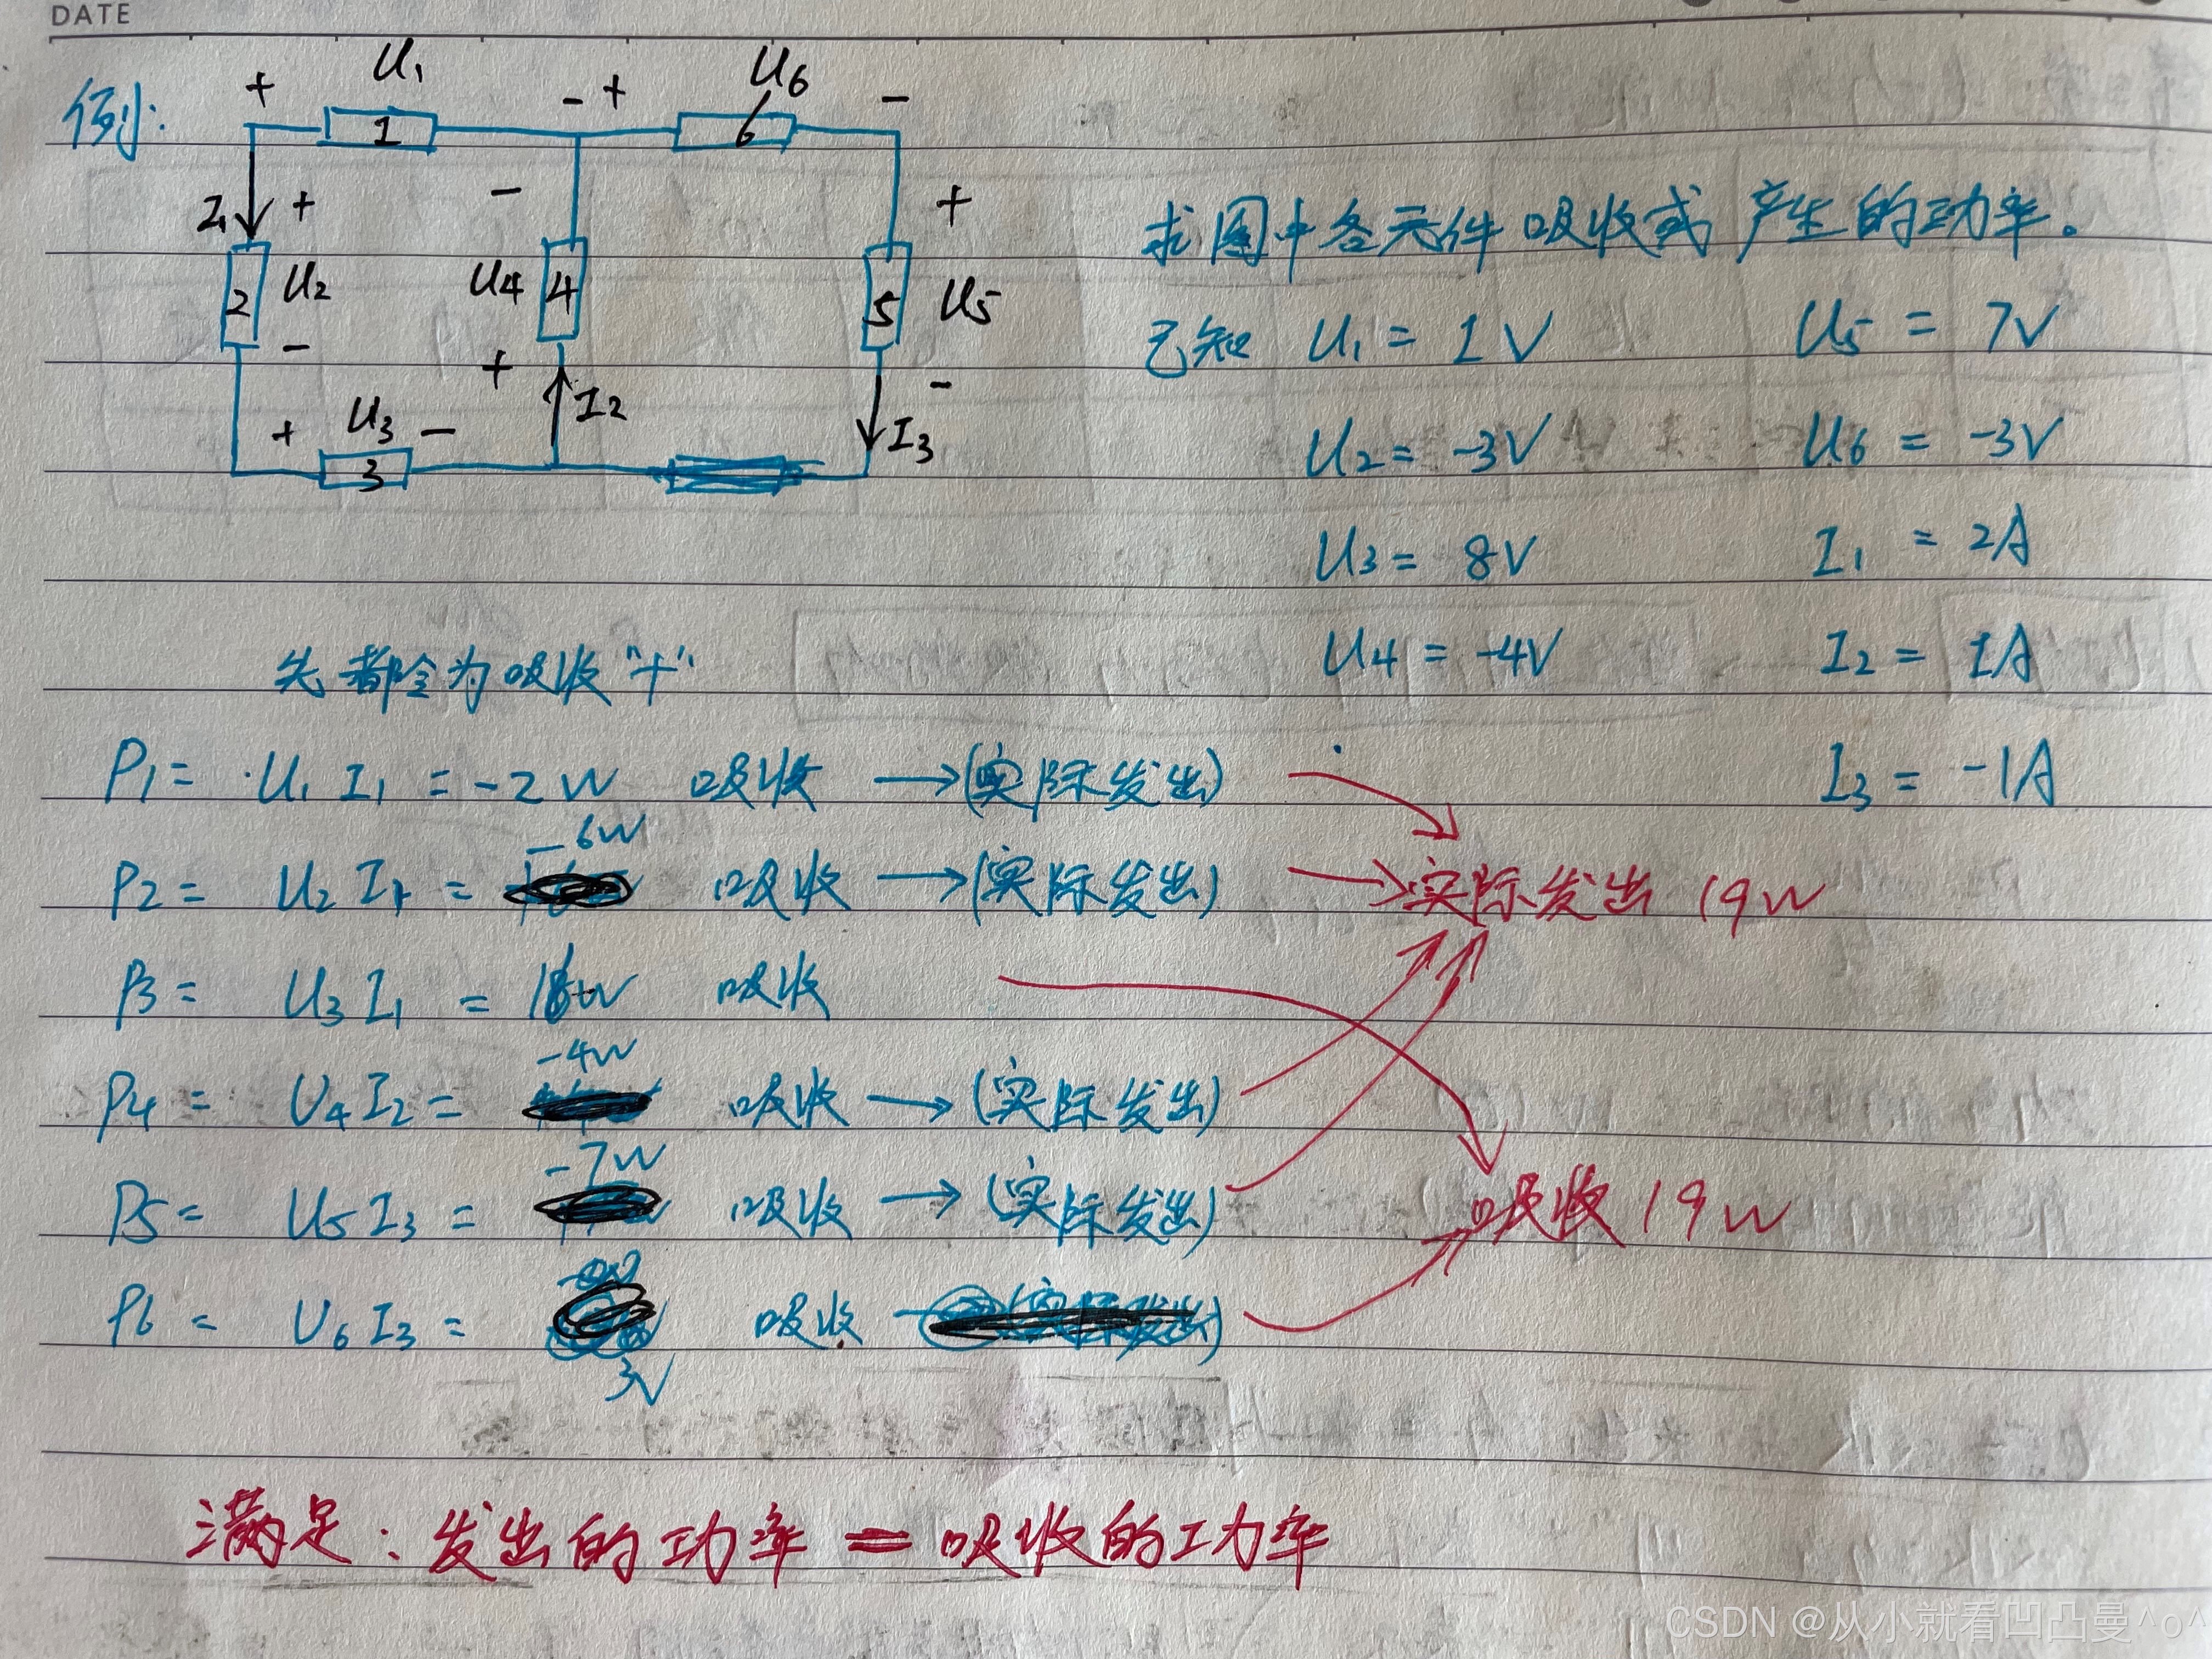 DATE
例:
+ U₁ - + U₆ -
1 6
I₁ + - +
2 U₂ U₄ 4 5 U₅
- + I₂ -
+ U₃ - I₃
3
求图中各元件吸收或产生的功率。
已知 U₁ = 1V U₅ = 7V
U₂ = -3V U₆ = -3V
U₃ = 8V I₁ = 2A
U₄ = -4V I₂ = 1A
I₃ = -1A
先都令为吸收"+"
P₁ = U₁ I₁ = -2W 吸收 →(实际发出)
P₂ = U₂ I₁ = -6W 吸收 →(实际发出) 实际发出 19W
P₃ = U₃ I₁ = 16W 吸收
P₄ = U₄ I₂ = -4W 吸收 →(实际发出)
P₅ = U₅ I₃ = -7W 吸收 →(实际发出) 吸收 19W
P₆ = U₆ I₃ = 3V 吸收
满足: 发出的功率 = 吸收的功率
CSDN @从小就看凹凸曼^o^